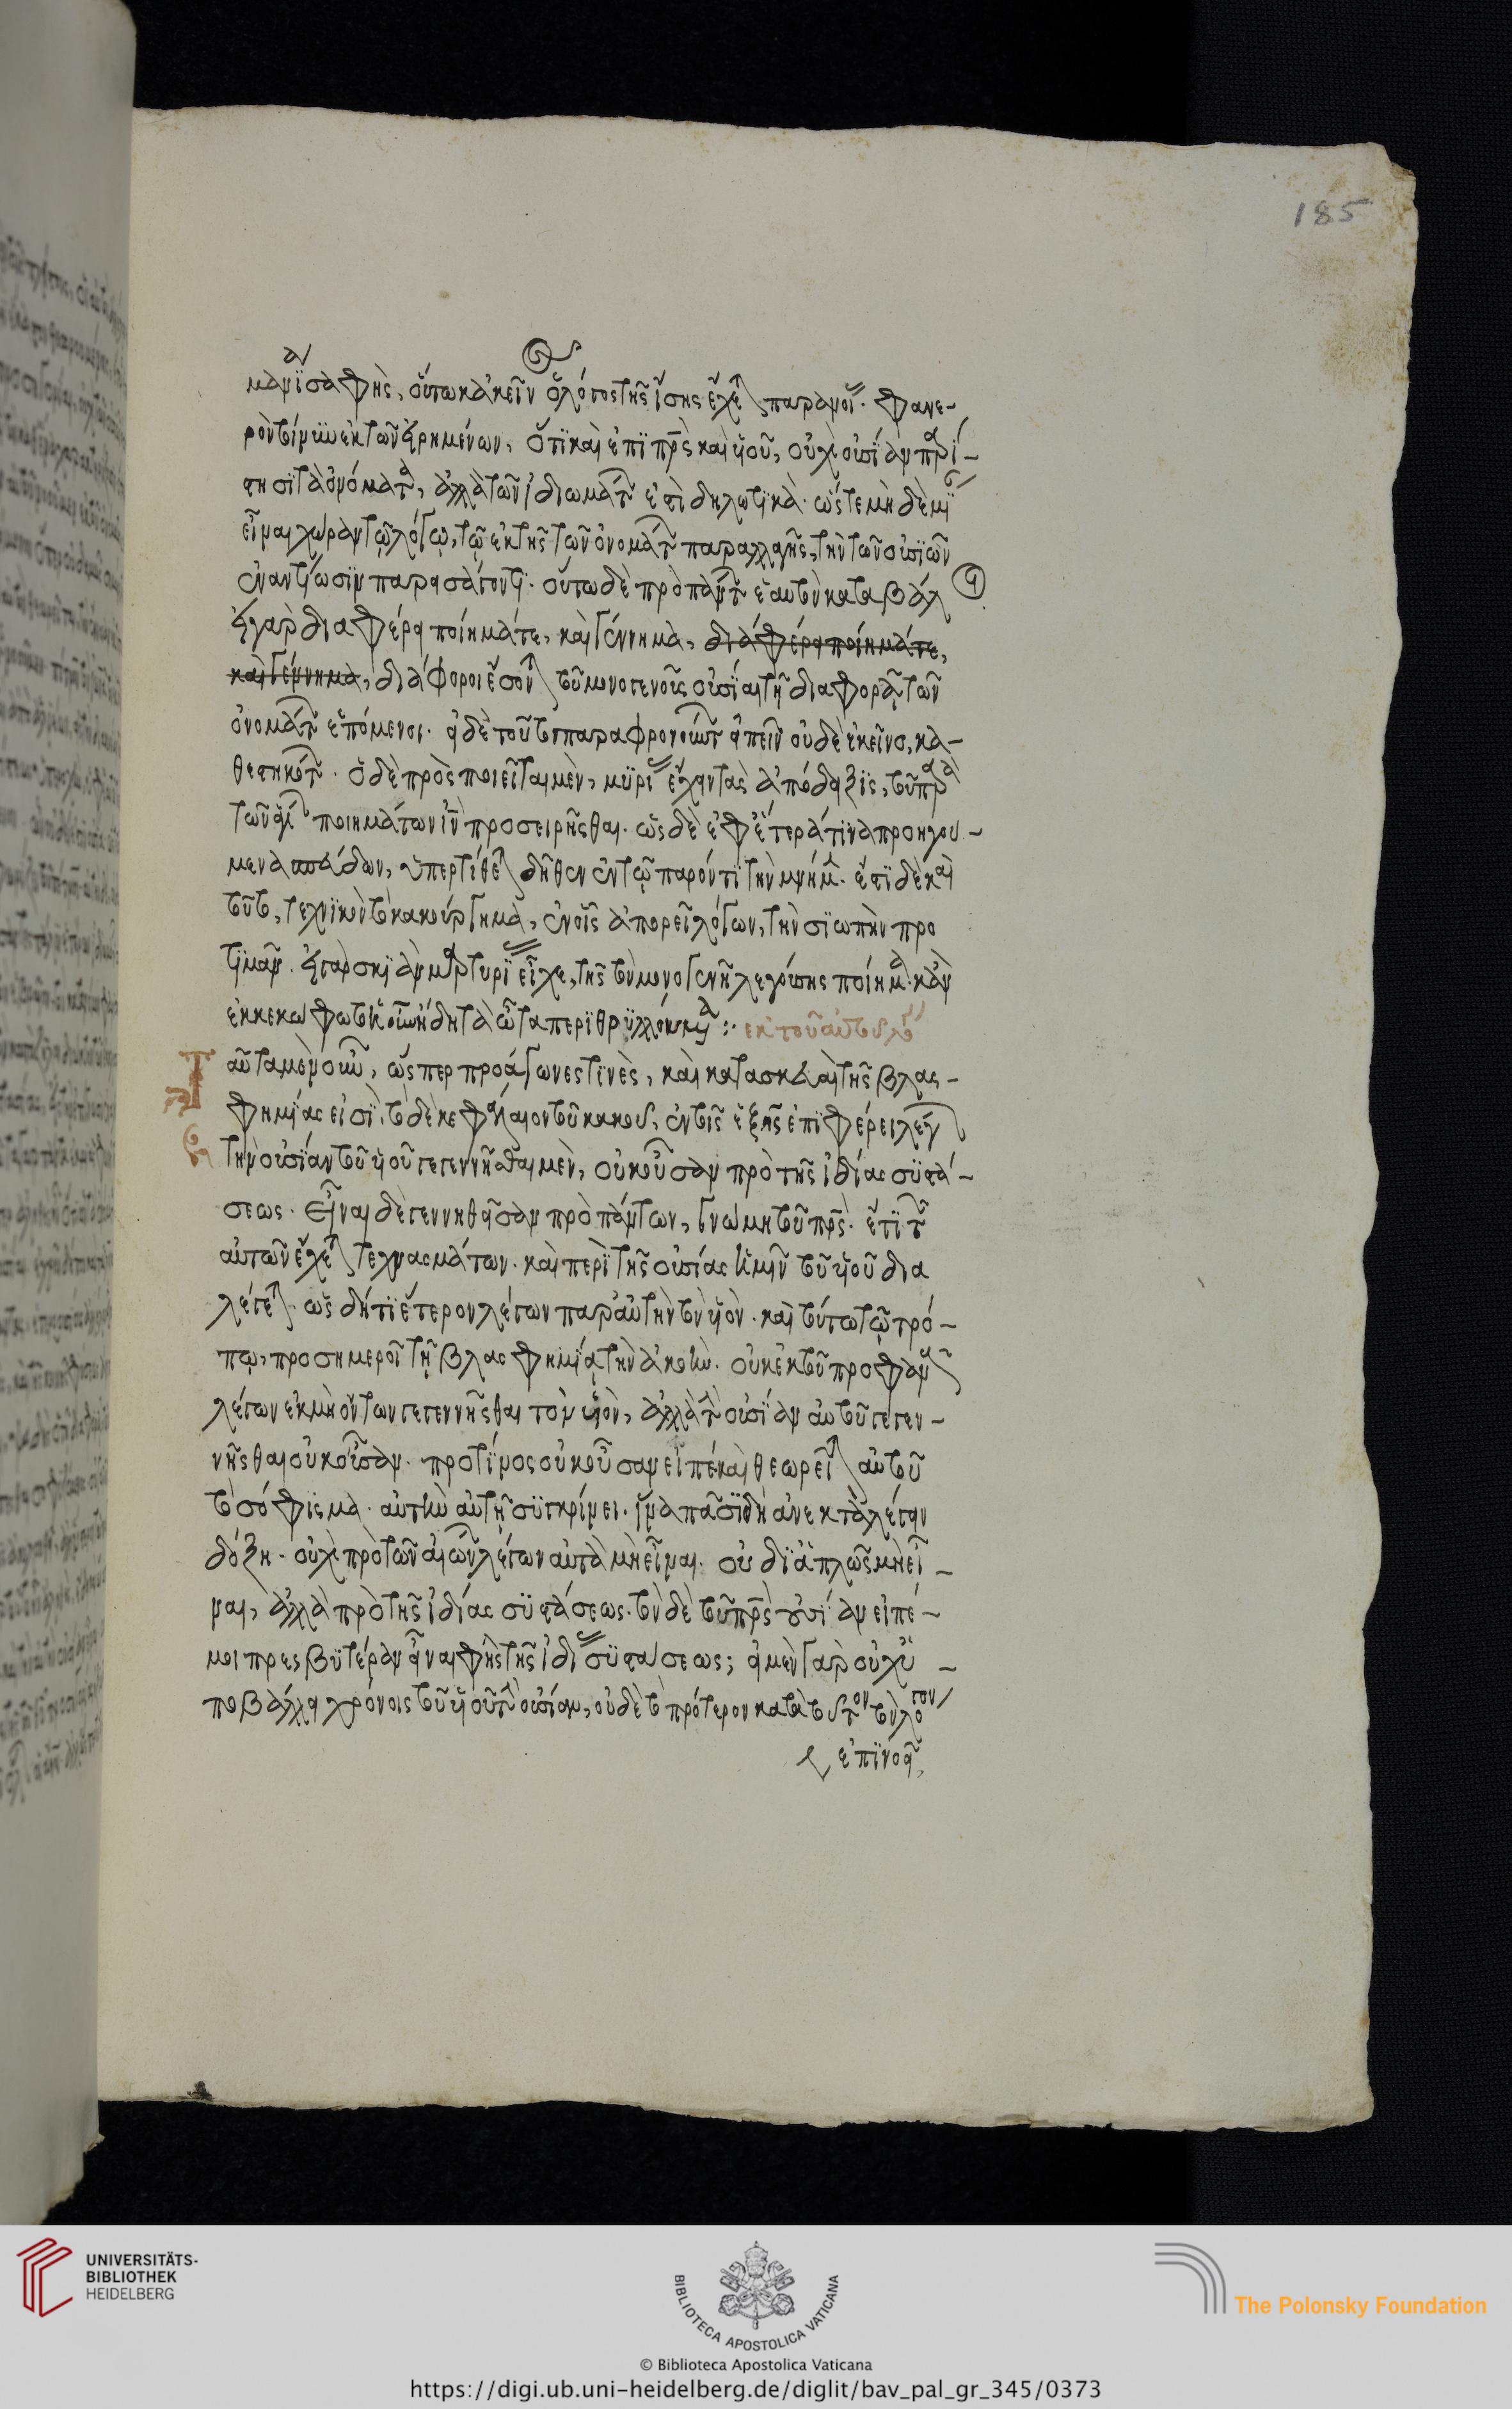 185
μανία σαφὴς, οὕτω κἀκεῖν ὁ λόγος τῆς ἴσης ἔχεται παρανοίας. φανε-
ρὸν τοίνυν ἐκ τῶν εἰρημένων, ὅτι καὶ ἐπὶ πρς καὶ υἱοῦ, οὐχὶ οὐσίαν παρί-
στησι τὰ ὀνόματα, ἀλλὰ τῶν ἰδιωμάτων ἐστὶ δηλωτικὰ. ὥστε μὴ δὲ μίαν
εἶναι χώραν τῷ λόγῳ, τῷ ἐκ τῆς τῶν ὀνομάτων παραλλαγῆς, τὴν τῶν οὐσιῶν
ἐναντίωσιν παρεισάγοντι. οὕτω δὲ πρὸ πάντων ἑαυτὸν καταβάλ
εἰ γὰρ διαφέρει ποίημά τε, καὶ γέννημα, διαφέρει ποίημά τε,
καὶ γέννημα, διάφοροι ἔσονται τοῦ μονογενοῦς οὐσίαι τῇ διαφορᾷ τῶν
ὀνομάτων ἑπόμενοι. εἰ δὲ τοῦτο παραφρονοῦντος εἰπεῖν οὐδὲ ἐκεῖνο, κα-
θεστηκότος. ὁ δὲ προσποιεῖται μὲν, μυρίας ἔχειν τὰς ἀποδείξεις, τοῦ παρὰ
τῶν ἁγίων ποιημάτων προσειρῆσθαι. ὡς δὲ ἐφ' ἕτερά τινα προηγού-
μενα σπεύδων, ὑπερτίθεται δῆθεν ἐν τῷ παρόντι τὴν μνήμην. ἔστι δὲ καὶ
τοῦτο, τεχνικὸν τὸ κακούργημα, ἐν οἷς ἀπορεῖ λόγων, τὴν σιωπὴν προ
τιμᾶν. εἰ γὰρ σκιὰν μαρτυρίας εἶχε, τῆς τὸν μονογενῆ λεγούσης ποίημα. κἂν
ἐκκεκώφωτο ἡμῶν ἤδη τὰ ὦτα περιθρυλλούμενα :· ἐκ τοῦ αὐτοῦ λόγου
Ταῦτα μὲν οὖν, ὥσπερ προάγωνές τινὲς, καὶ κατασκευαὶ τῆς βλασ-
φημίας εἰσὶ, τὸ δὲ κεφάλαιον τοῦ κακοῦ, ἐν τοῖς ἑξῆς ἐπιφέρει λέγων
τὴν οὐσίαν τοῦ υἱοῦ γεγεννῆσθαι μὲν, οὐκ οὖσαν πρὸ τῆς ἰδίας συστά-
σεως. εἶναι δὲ γεννηθεῖσαν πρὸ πάντων, γνώμῃ τοῦ πρς. ἔτι τῶν
αὐτῶν ἔχεται τεχνασμάτων. καὶ περὶ τῆς οὐσίας ἡμῖν τοῦ υἱοῦ δια
λέγεται. ὡς δή τι ἕτερον λέγων παρ' αὐτὴν τὸν υἱὸν. καὶ τούτῳ τῷ τρό-
πῳ, προσημεροῖ τῇ βλασφημίᾳ τὴν ἀκοὴν. οὐκ ἐκ τοῦ προφανοῦς
λέγων ἐκ μὴ ὄντων γεγεννῆσθαι τὸν υἱὸν, ἀλλὰ τὴν οὐσίαν αὐτοῦ γεγεν-
νῆσθαι οὐκ οὖσαν. πρὸ τίνος οὐκ οὖσαν εἰπέ καὶ θεωρεῖται αὐτοῦ
τὸ σόφισμα. αὐτὴν αὐτῇ συγκρίνει. ἵνα πᾶσι δὴ ἀνεκτὰ λέγειν
δόξῃ. οὐχὶ πρὸ τῶν αἰώνων λέγων αὐτὰ μὴ εἶναι. οὐ δι' ἁπλῶς μὴ εἶ-
ναι, ἀλλὰ πρὸ τῆς ἰδίας συστάσεως. τὸν δὲ τοῦ πρς οὐσίαν εἰπέ-
μοι πρεσβυτέραν εἶναι φῂς τῆς ἰδίας συστάσεως; εἰ μὲν γὰρ οὐχ ὑ-
ποβάλλει χρόνοις τοῦ υἱοῦ τὴν οὐσίαν, οὐδὲ τὸ πρότερον κατὰ τοῦτον τὸν λόγον
ἐπινοεῖ,
UNIVERSITÄTS-
BIBLIOTHEK
HEIDELBERG
BIBLIOTECA APOSTOLICA VATICANA
The Polonsky Foundation
© Biblioteca Apostolica Vaticana
https://digi.ub.uni-heidelberg.de/diglit/bav_pal_gr_345/0373